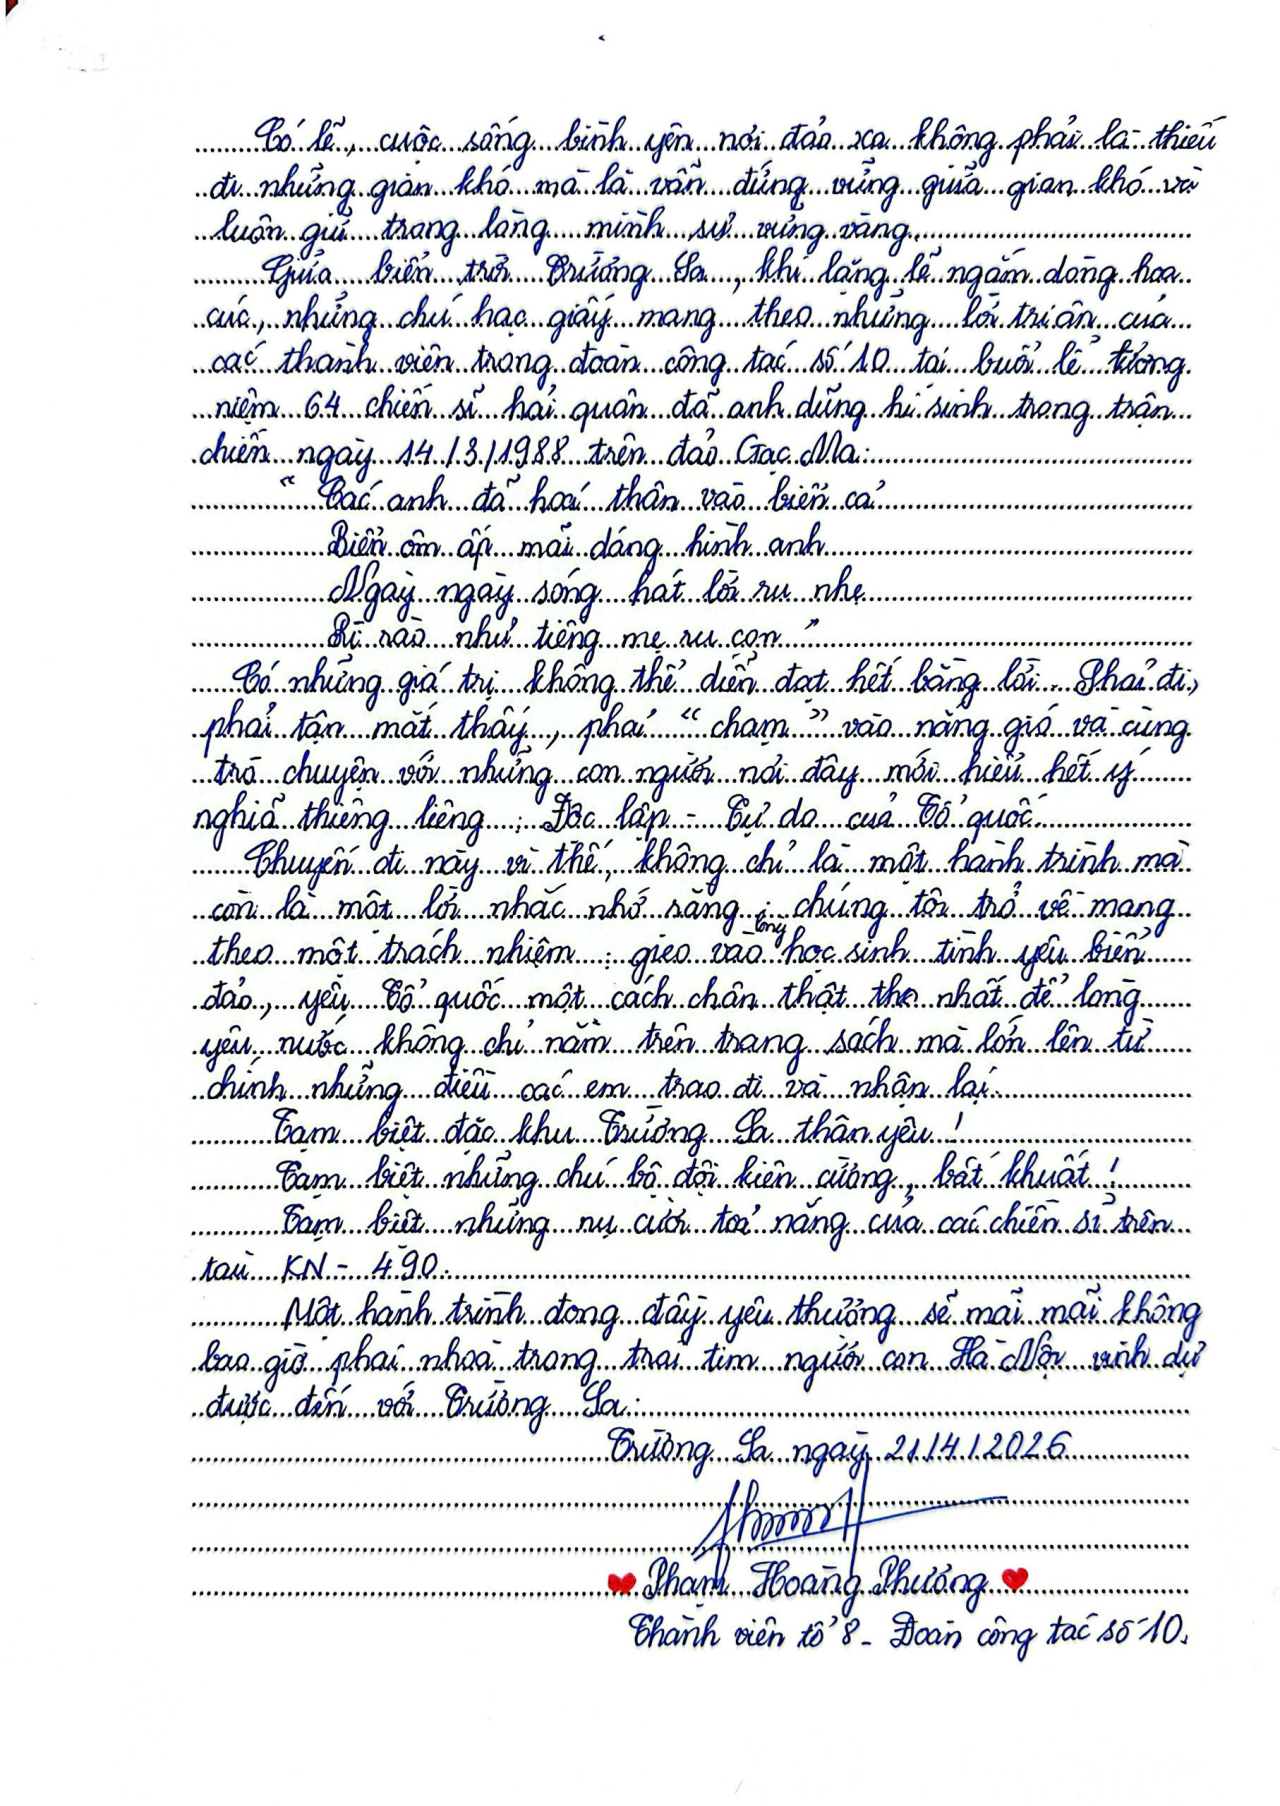 Có lẽ, cuộc sống bình yên nơi đảo xa không phải là thiếu
đi những gian khó mà là vẫn đứng vững giữa gian khó và
luôn giữ trong lòng mình sự vững vàng.
Giữa biển trời Trường Sa, khi lặng lẽ ngắm dòng hoa
cúc, những chú hạc giấy mang theo những lời tri ân của
các thành viên trong đoàn công tác số 10 tại buổi lễ tưởng
niệm 64 chiến sĩ hải quân đã anh dũng hi sinh trong trận
chiến ngày 14/3/1988 trên đảo Gạc Ma:
" Các anh đã hoá thân vào biển cả
Biển ôm ấp mãi dáng hình anh
Ngày ngày sóng hát lời ru nhẹ
Rì rào như tiếng mẹ ru con "
Có những giá trị không thể diễn đạt hết bằng lời. Phải đi,
phải tận mắt thấy, phải " chạm " vào nắng gió và cùng
trò chuyện với những con người nơi đây mới hiểu hết ý
nghĩa thiêng liêng : Độc lập - Tự do của Tổ quốc.
Chuyến đi này vì thế, không chỉ là một hành trình mà
còn là một lời nhắc nhớ rằng : chúng tôi trở về mang
theo một trách nhiệm : gieo vào lòng học sinh tình yêu biển
đảo, yêu Tổ quốc một cách chân thật nhất để lòng
yêu nước không chỉ nằm trên trang sách mà lớn lên từ
chính những điều các em trao đi và nhận lại.
Tạm biệt đặc khu Trường Sa thân yêu !
Tạm biệt những chú bộ đội kiên cường, bất khuất !
Tạm biệt những nụ cười toả nắng của các chiến sĩ trên
tàu KN - 490.
Một hành trình đong đầy yêu thương sẽ mãi mãi không
bao giờ phai nhoà trong trái tim người con Hà Nội vinh dự
được đến với Trường Sa.
Trường Sa ngày 21/4/2026
Phạm Hoàng Phương
Thành viên tổ 8 - Đoàn công tác số 10.